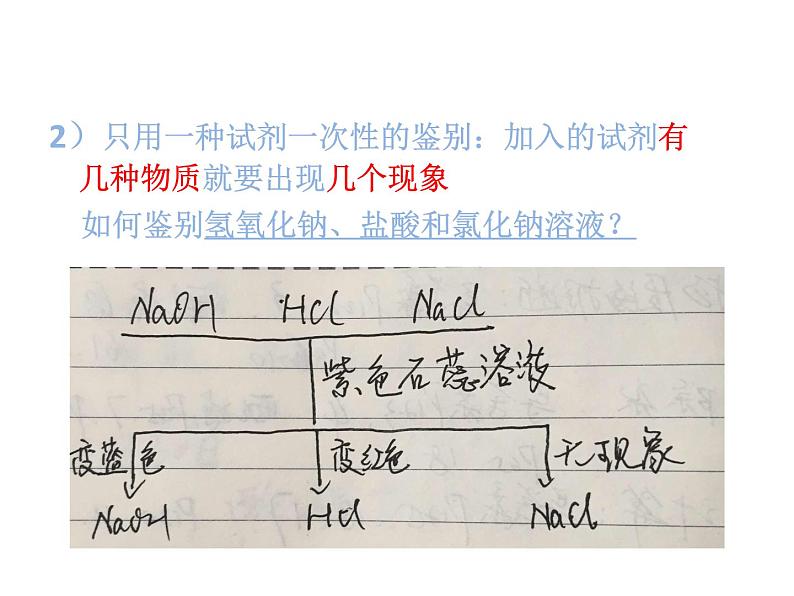 2）只用一种试剂一次性的鉴别：加入的试剂有
几种物质就要出现几个现象
如何鉴别氢氧化钠、盐酸和氯化钠溶液？
NaOH HCl NaCl
紫色石蕊溶液
变蓝色 变红色 无现象
NaOH HCl NaCl